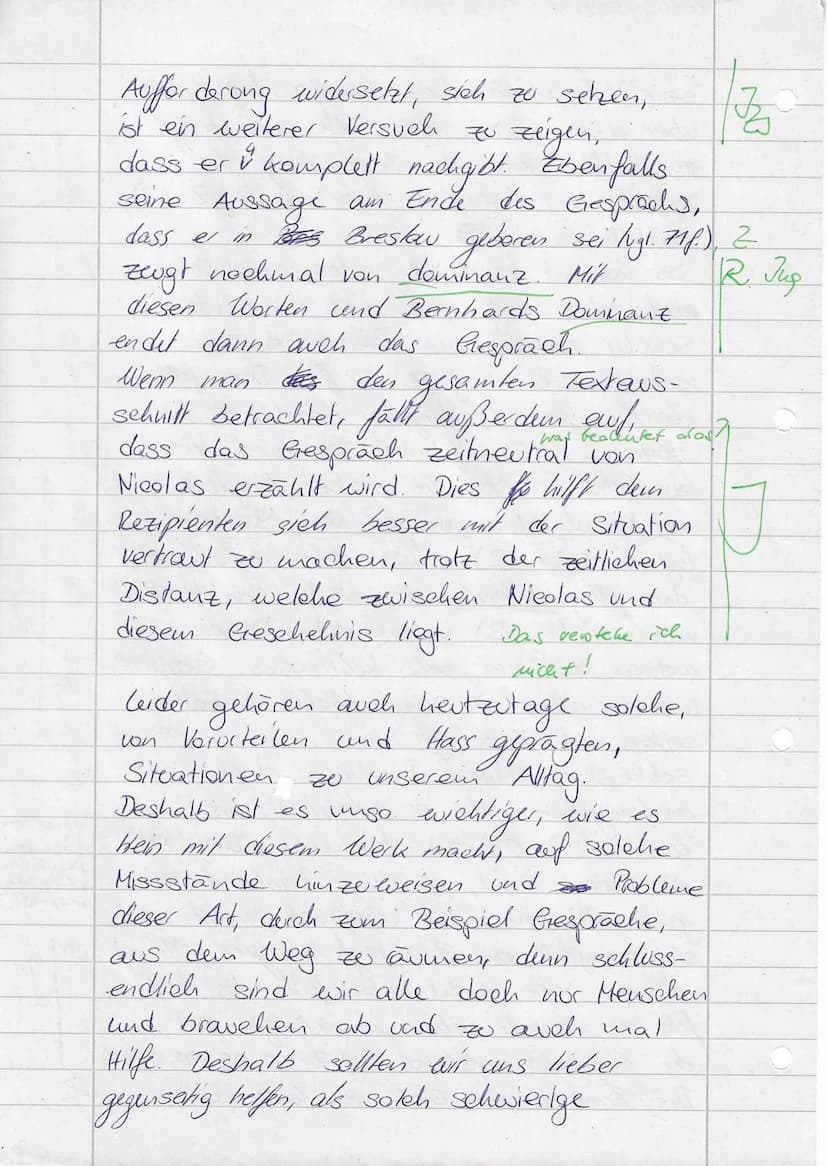 Aufforderung widersetzt, sich zu setzen,
ist ein weiterer Versuch zu zeigen,
dass er komplett nachgibt. Ebenfalls
seine Aussage am Ende des Gesprächs,
dass er in Breslau geboren sei (vgl. 71f.), Z
zeugt nochmal von dominanz. Mit R.
diesen Worten und Bernhards Dominanz
endet dann auch das Gespräch.
Wenn man den gesamten Textaus-
schnitt betrachtet, fällt außerdem auf,
was bedeutet das?
dass das Gespräch zeitneutral von
Nicolas erzählt wird. Dies hilft dem
Rezipienten sich besser mit der Situation
vertraut zu machen, trotz der zeitlichen
Distanz, welche zwischen Nicolas und
diesem Geschehnis liegt. Das verstehe ich
nicht!
Leider gehören auch heutzutage solche,
von Vorurteilen und Hass geprägten,
Situationen zu unserem Alltag.
Deshalb ist es umso wichtiger, wie es
Hein mit diesem Werk macht, auf solche
Missstände hinzuweisen und Probleme
dieser Art, durch zum Beispiel Gespräche,
aus dem Weg zu räumen, denn schluss-
endlich sind wir alle doch nur Menschen
und brauchen ab und zu auch mal
Hilfe. Deshalb sollten wir uns lieber
gegenseitig helfen, als solch schwierige